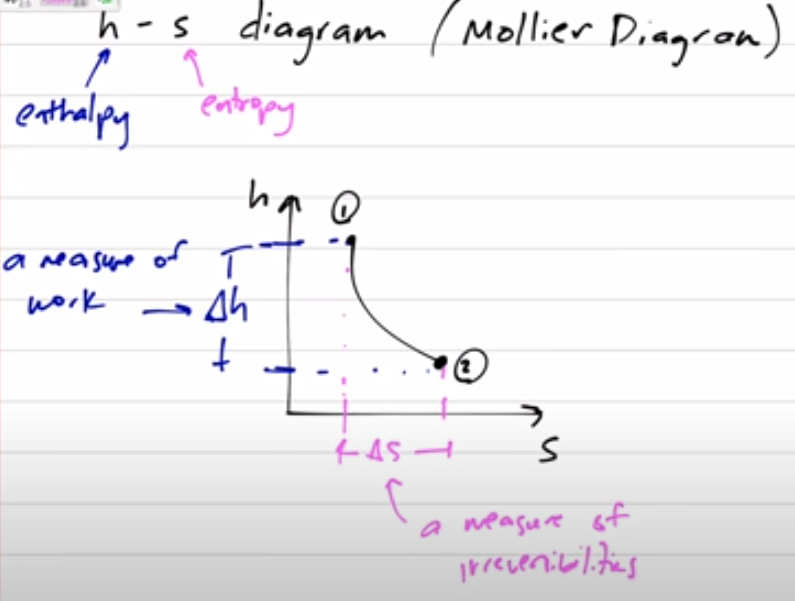 h - s diagram (Mollier Diagram)
enthalpy entropy
h ①
a measure of
work → Δh
②
Δs s
a measure of
irreversibilities